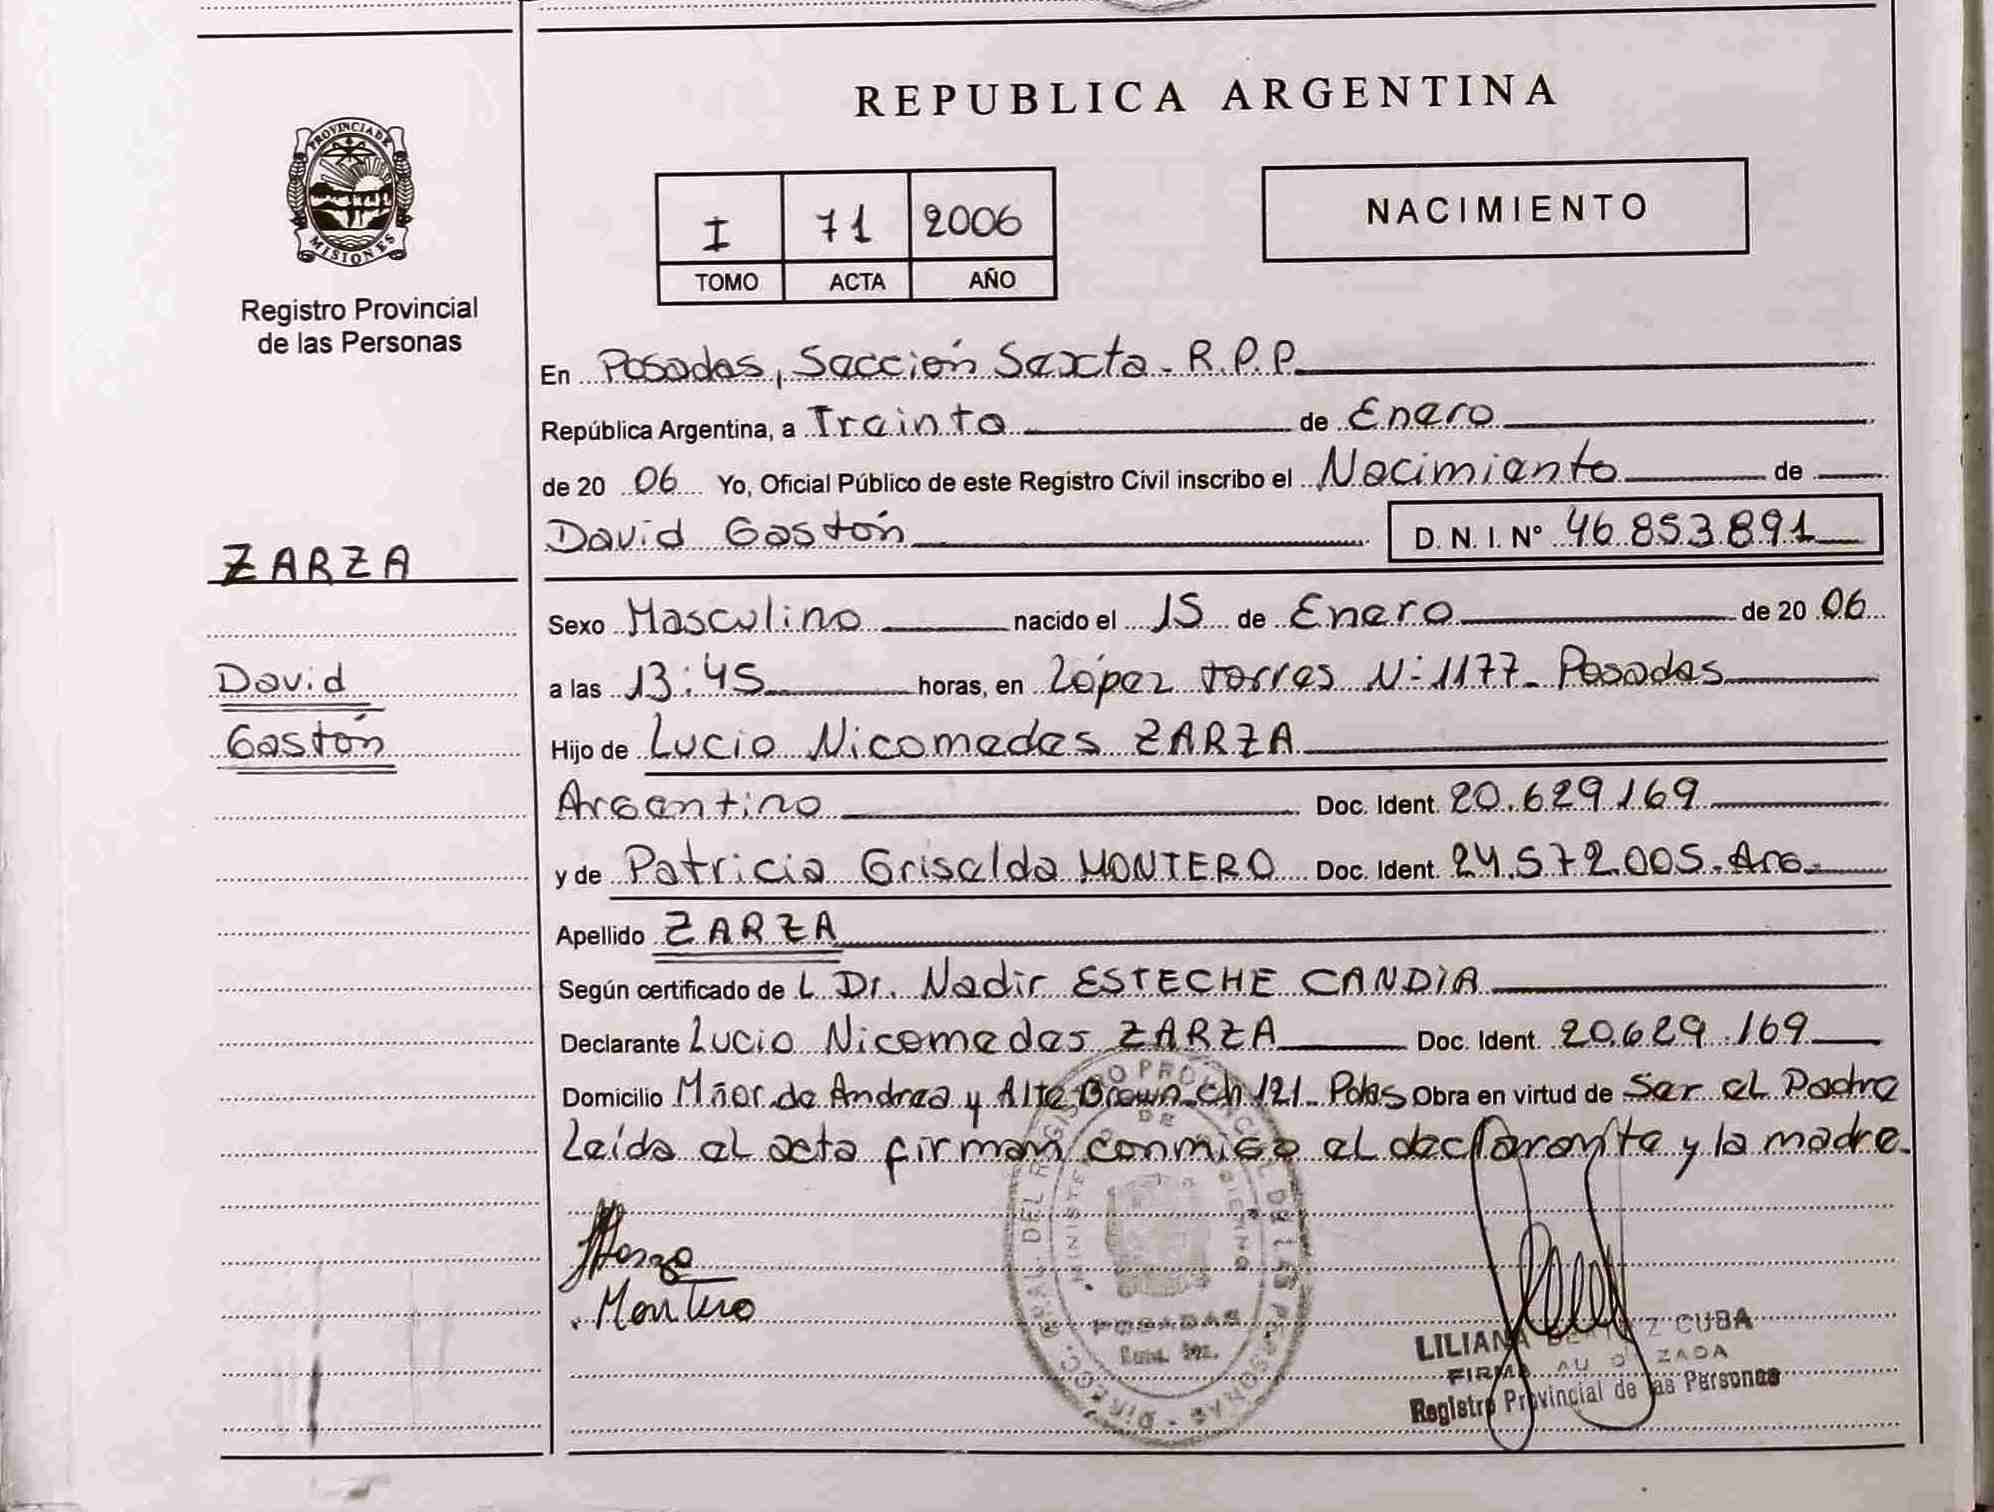 REPUBLICA ARGENTINA
PROVINCIA DE
MISIONES
Registro Provincial
de las Personas
I 71 2006
TOMO ACTA AÑO
NACIMIENTO
En Posadas, Sección Sexta - R.P.P.
República Argentina, a Treinta de Enero
de 20 06 Yo, Oficial Público de este Registro Civil inscribo el Nacimiento de
David Gastón D. N. I. N° 46.853.891
ZARZA
David
Gastón
Sexo Masculino nacido el 15 de Enero de 20 06
a las 13:45 horas, en López Torres N° 1177 - Posadas
Hijo de Lucio Nicomedes ZARZA
Argentino Doc. Ident. 20.629.169
y de Patricia Griselda MONTERO Doc. Ident. 24.572.005 - Arg.
Apellido ZARZA
Según certificado de L Dr. Nadir ESTECHE CANDIA
Declarante Lucio Nicomedes ZARZA Doc. Ident. 20.629.169
Domicilio Mñor. de Andrea y Alte. Brown Ch 121 - Pdas Obra en virtud de Ser el Padre
Leída el acta firman conmigo el declarante y la madre.
Montero
POSADAS
LILIANA CUBA
FIRMA
Registro Provincial de las Personas